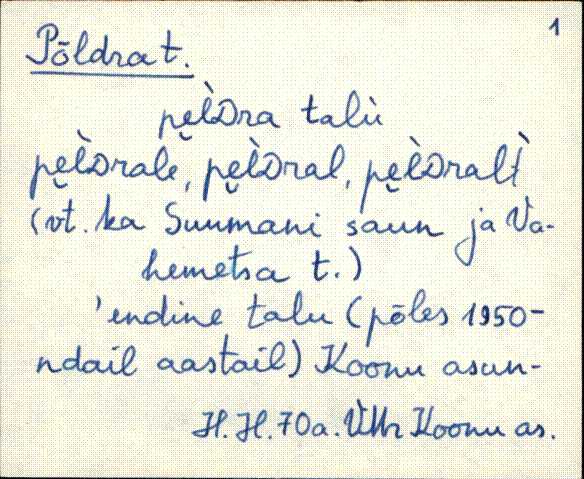 1
Põldra t.
pe̮l̀Dra talù
pe̮l̀Drale, pe̮l̀Dral, pe̮l̀Dralt̀
(vt. ka Suumani saun ja Va-
hemetsa t.)
'endine talu (põles 1950-
ndail aastail) Koonu asun-
H.H. 70a. VMr Koonu as.